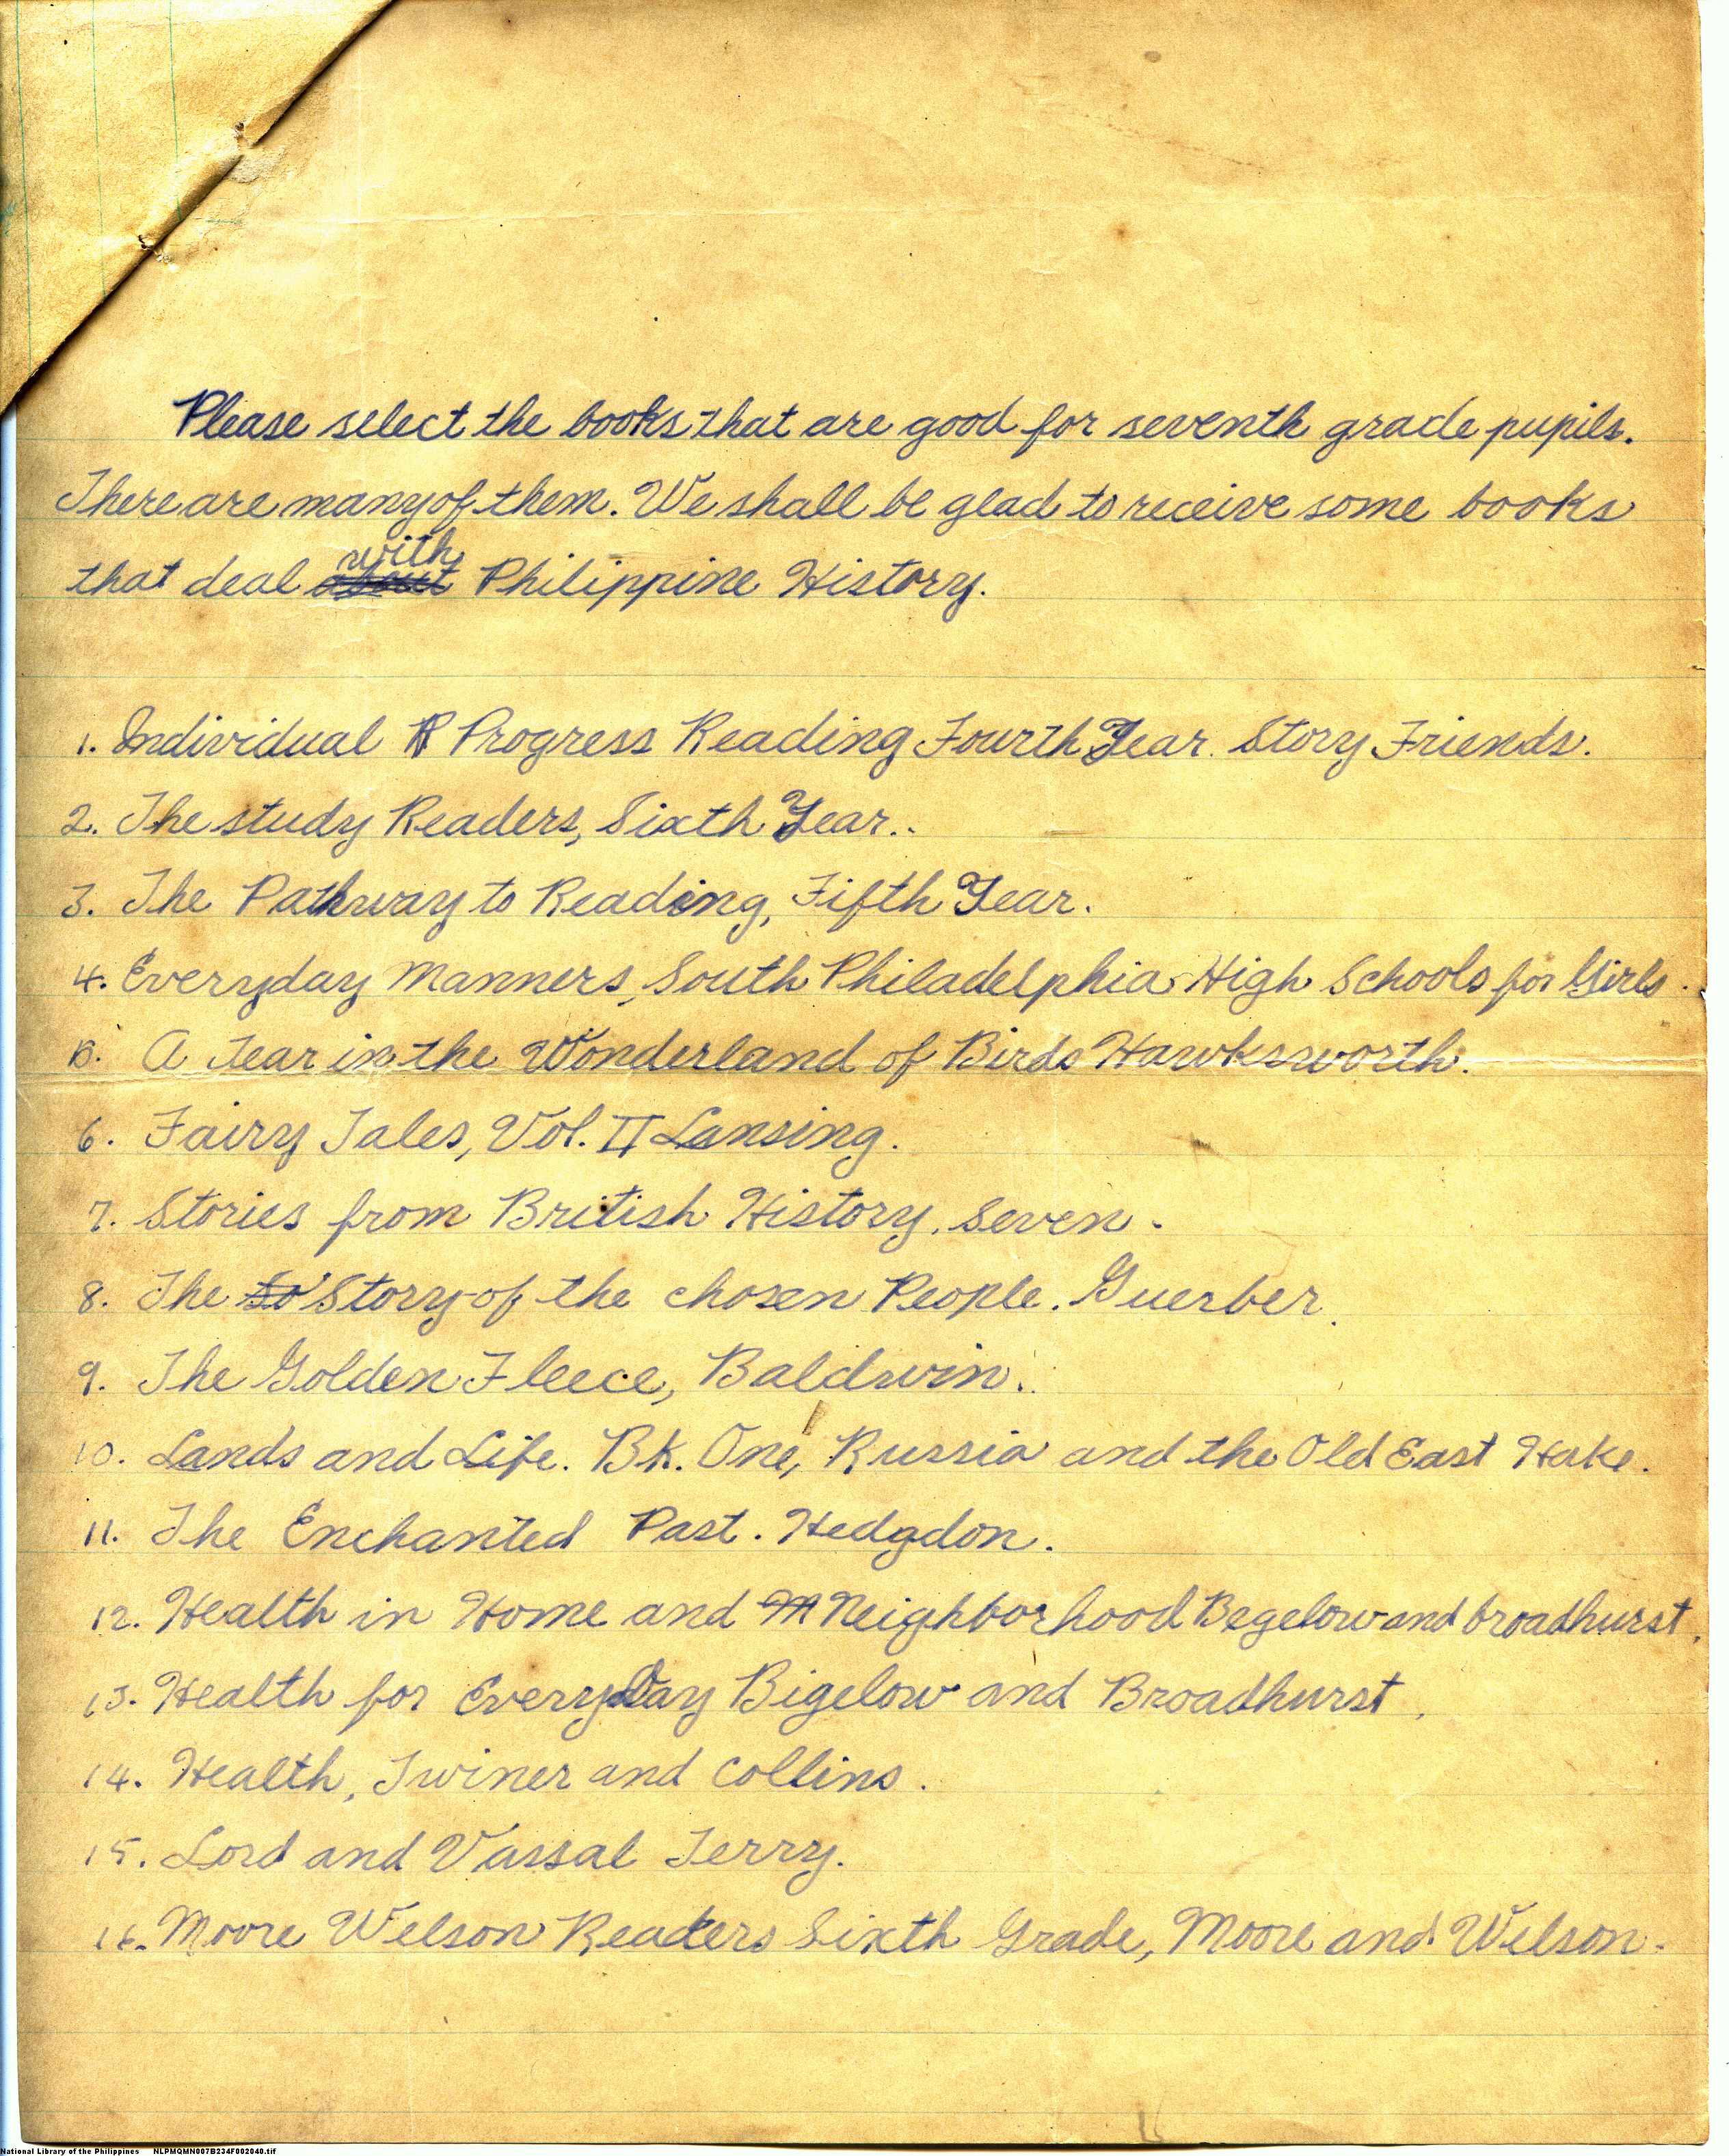 Please select the books that are good for seventh grade pupils.
There are many of them. We shall be glad to receive some books
with
that deal about Philippine History.
1. Individual R Progress Reading Fourth Year. Story Friends.
2. The study Readers, Sixth Year..
3. The Pathway to Reading, Fifth Year.
4. Everyday Manners, South Philadelphia High Schools for Girls.
5. A Year in the Wonderland of Birds Hawksworth.
6. Fairy Tales, Vol. II Lansing.
7. Stories from British History, Seven.
8. The So Story of the chosen People. Guerber.
9. The Golden Fleece, Baldwin.
10. Lands and Life. Bk. One, Russia and the Old East Hake.
11. The Enchanted Past. Hedgdon.
12. Health in Home and M Neighborhood Begelow and broadhurst.
13. Health for EveryDay Bigelow and Broadhurst.
14. Health, Twiner and Collins.
15. Lord and Vassal Terry.
16. Moore Welson Readers Sixth Grade, Moore and Welson.
National Library of the Philippines NLPMQMN007B234F002040.tif